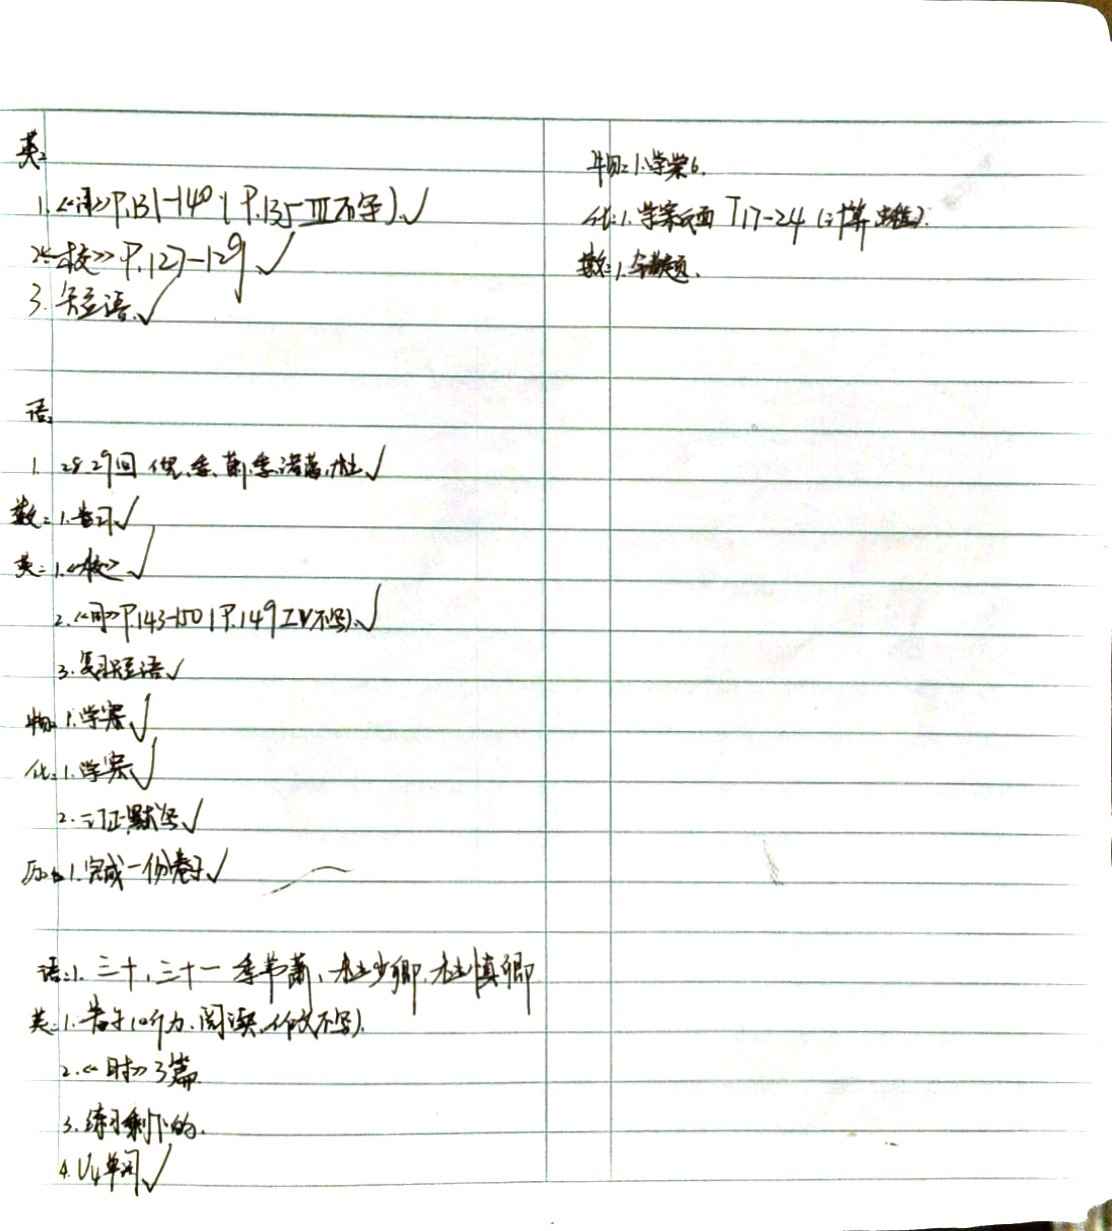 英:
1.《同》P.131-140 (P.135 III不写).✓
2.《校》P.127-129 ✓
3. 短语.✓
语:
1. 28.29回 倪.季.萧.季.诸葛.杜.✓
数: 1. ✓
英: 1.《校》.✓
2.《同》P.143-150 (P.149 IV不写).✓
3. 复习短语.✓
物: 1. 学案.✓
化: 1. 学案.✓
2. 订正默写.✓
历: 1. 完成一份卷子.✓
语: 1. 三十、三十一 季苇萧、杜少卿.杜慎卿
英: 1. 卷子(听力.阅读.作文不写).
2.《时》3篇.
3. 练习剩下的.
4. U4单词.✓
物: 1. 学案6.
化: 1. 学案 T17-24 (计算).
数: 1. 错题.